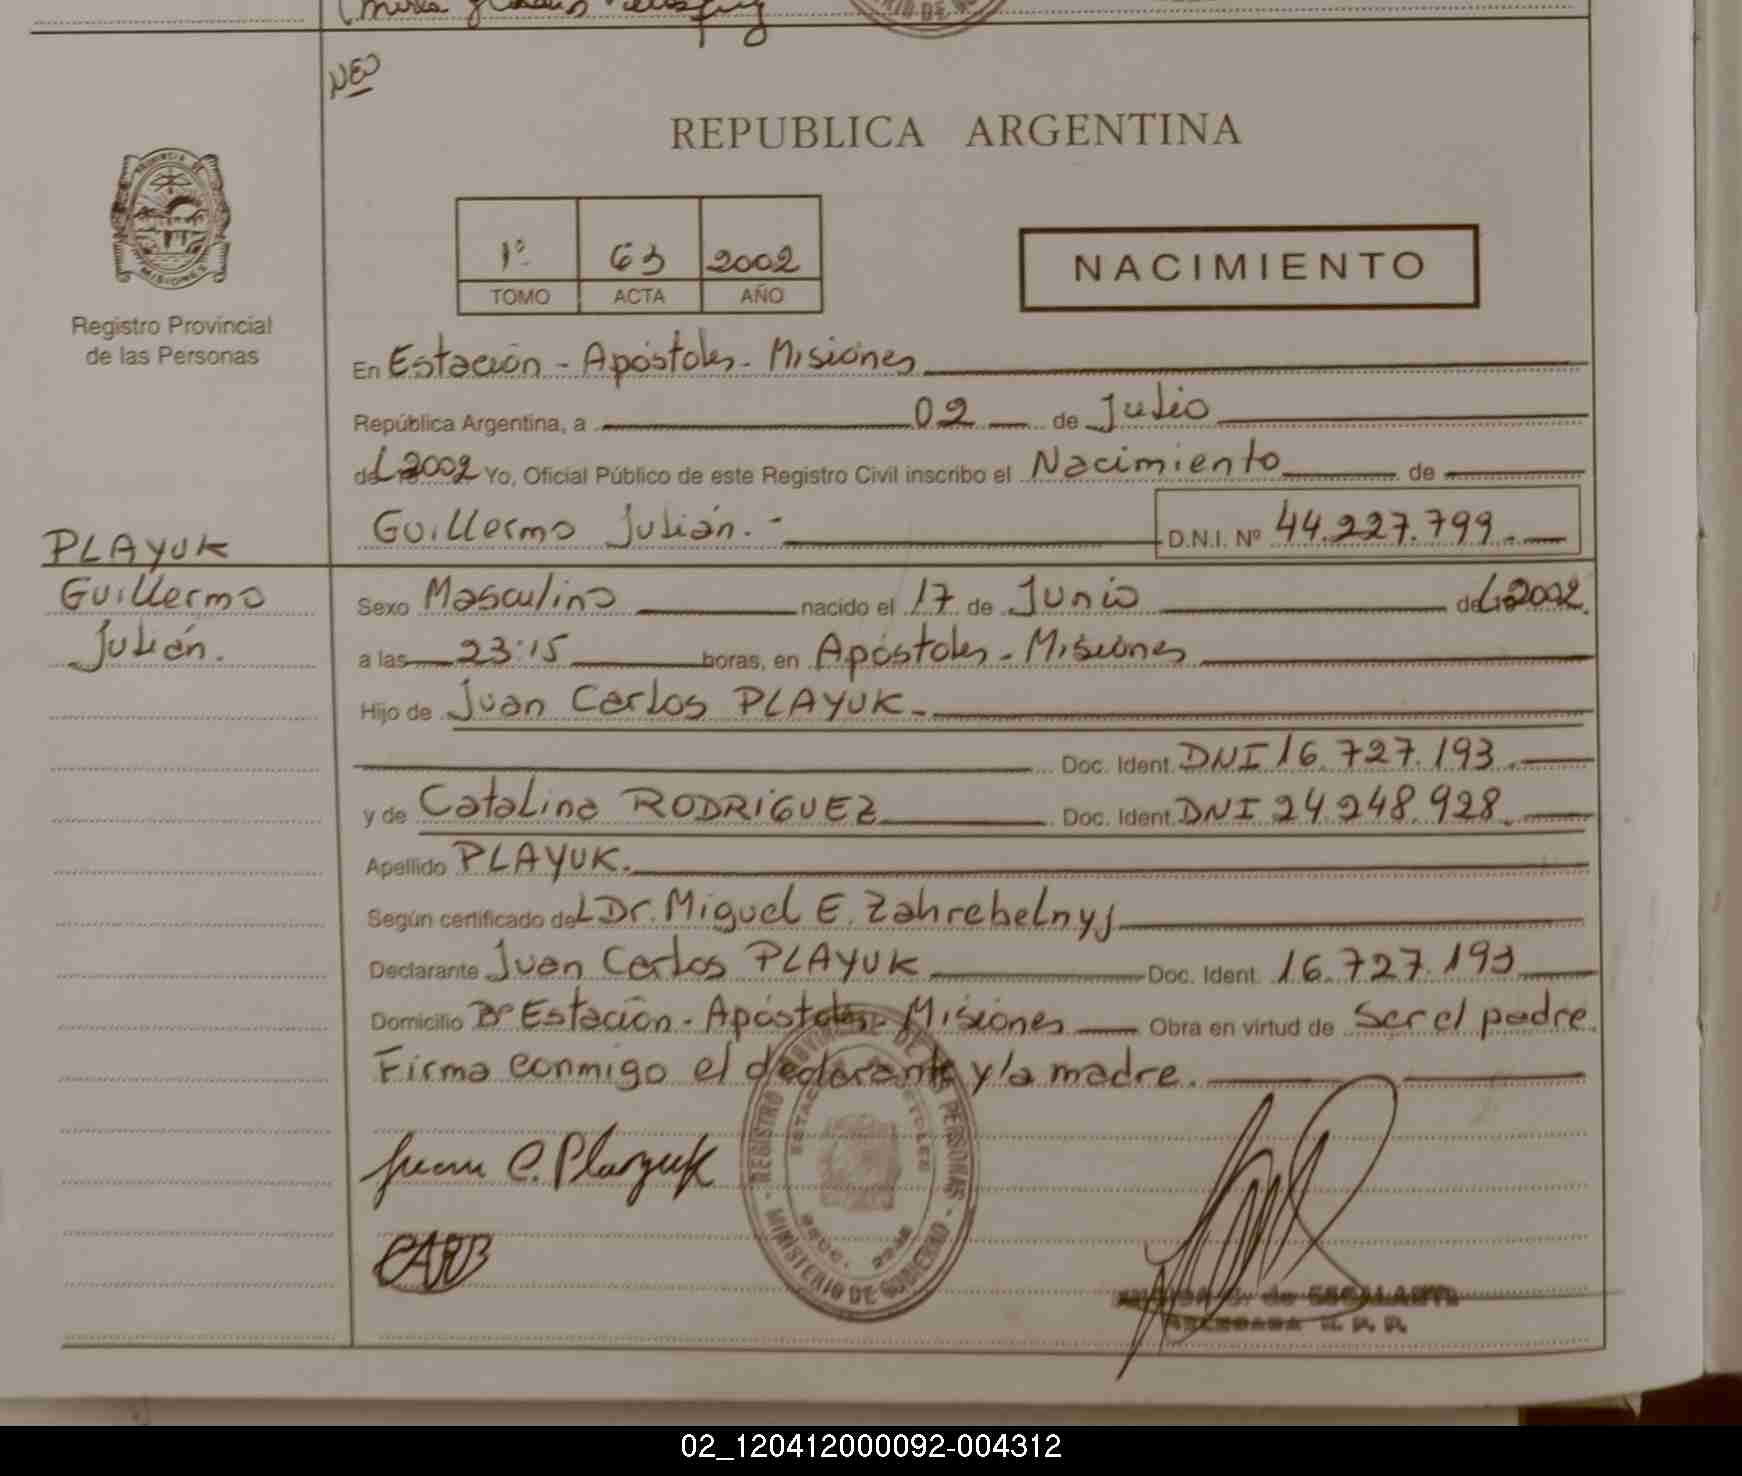 NEO
REPUBLICA ARGENTINA
PROVINCIA DE
MISIONES
1º 63 2002
TOMO ACTA AÑO
NACIMIENTO
Registro Provincial
de las Personas
En Estación - Apóstoles - Misiones
República Argentina, a 02 de Julio
del 2002 Yo, Oficial Público de este Registro Civil inscribo el Nacimiento de
Guillermo Julián.- D.N.I. Nº 44.227.799.
PLAYUK
Guillermo
Julián.
Sexo Masculino nacido el 17 de Junio del 2002.
a las 23:15 horas, en Apóstoles - Misiones
Hijo de Juan Carlos PLAYUK.
Doc. Ident. DNI 16.727.193.
y de Catalina RODRIGUEZ Doc. Ident. DNI 24.248.928.
Apellido PLAYUK.
Según certificado del Dr. Miguel E. Zahrebelnyj
Declarante Juan Carlos PLAYUK Doc. Ident. 16.727.193
Domicilio Bº Estación - Apóstoles - Misiones Obra en virtud de ser el padre.
Firma conmigo el declarante y la madre.
Juan C. Playuk
REGISTRO PROVINCIAL DE LAS PERSONAS
MINISTERIO DE GOBIERNO
02_120412000092-004312